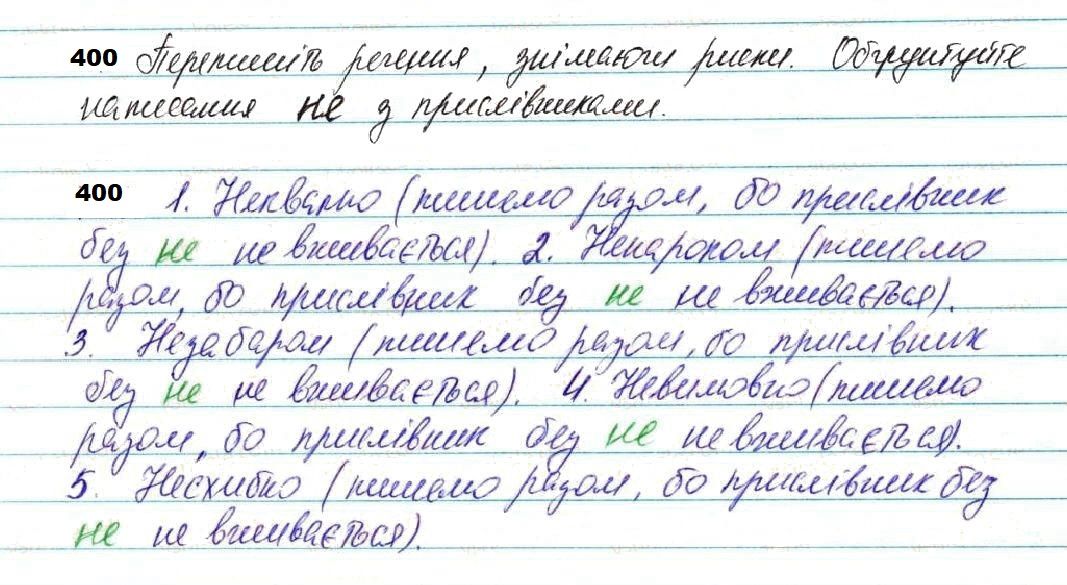 400 Перепишіть речення, знімаючи риски. Обґрунтуйте
написання не з прислівниками.
400 1. Неквапно (пишемо разом, бо прислівник
без не не вживається). 2. Ненароком (пишемо
разом, бо прислівник без не не вживається).
3. Незабаром (пишемо разом, бо прислівник
без не не вживається). 4. Невимовно (пишемо
разом, бо прислівник без не не вживається).
5. Несхибно (пишемо разом, бо прислівник без
не не вживається).